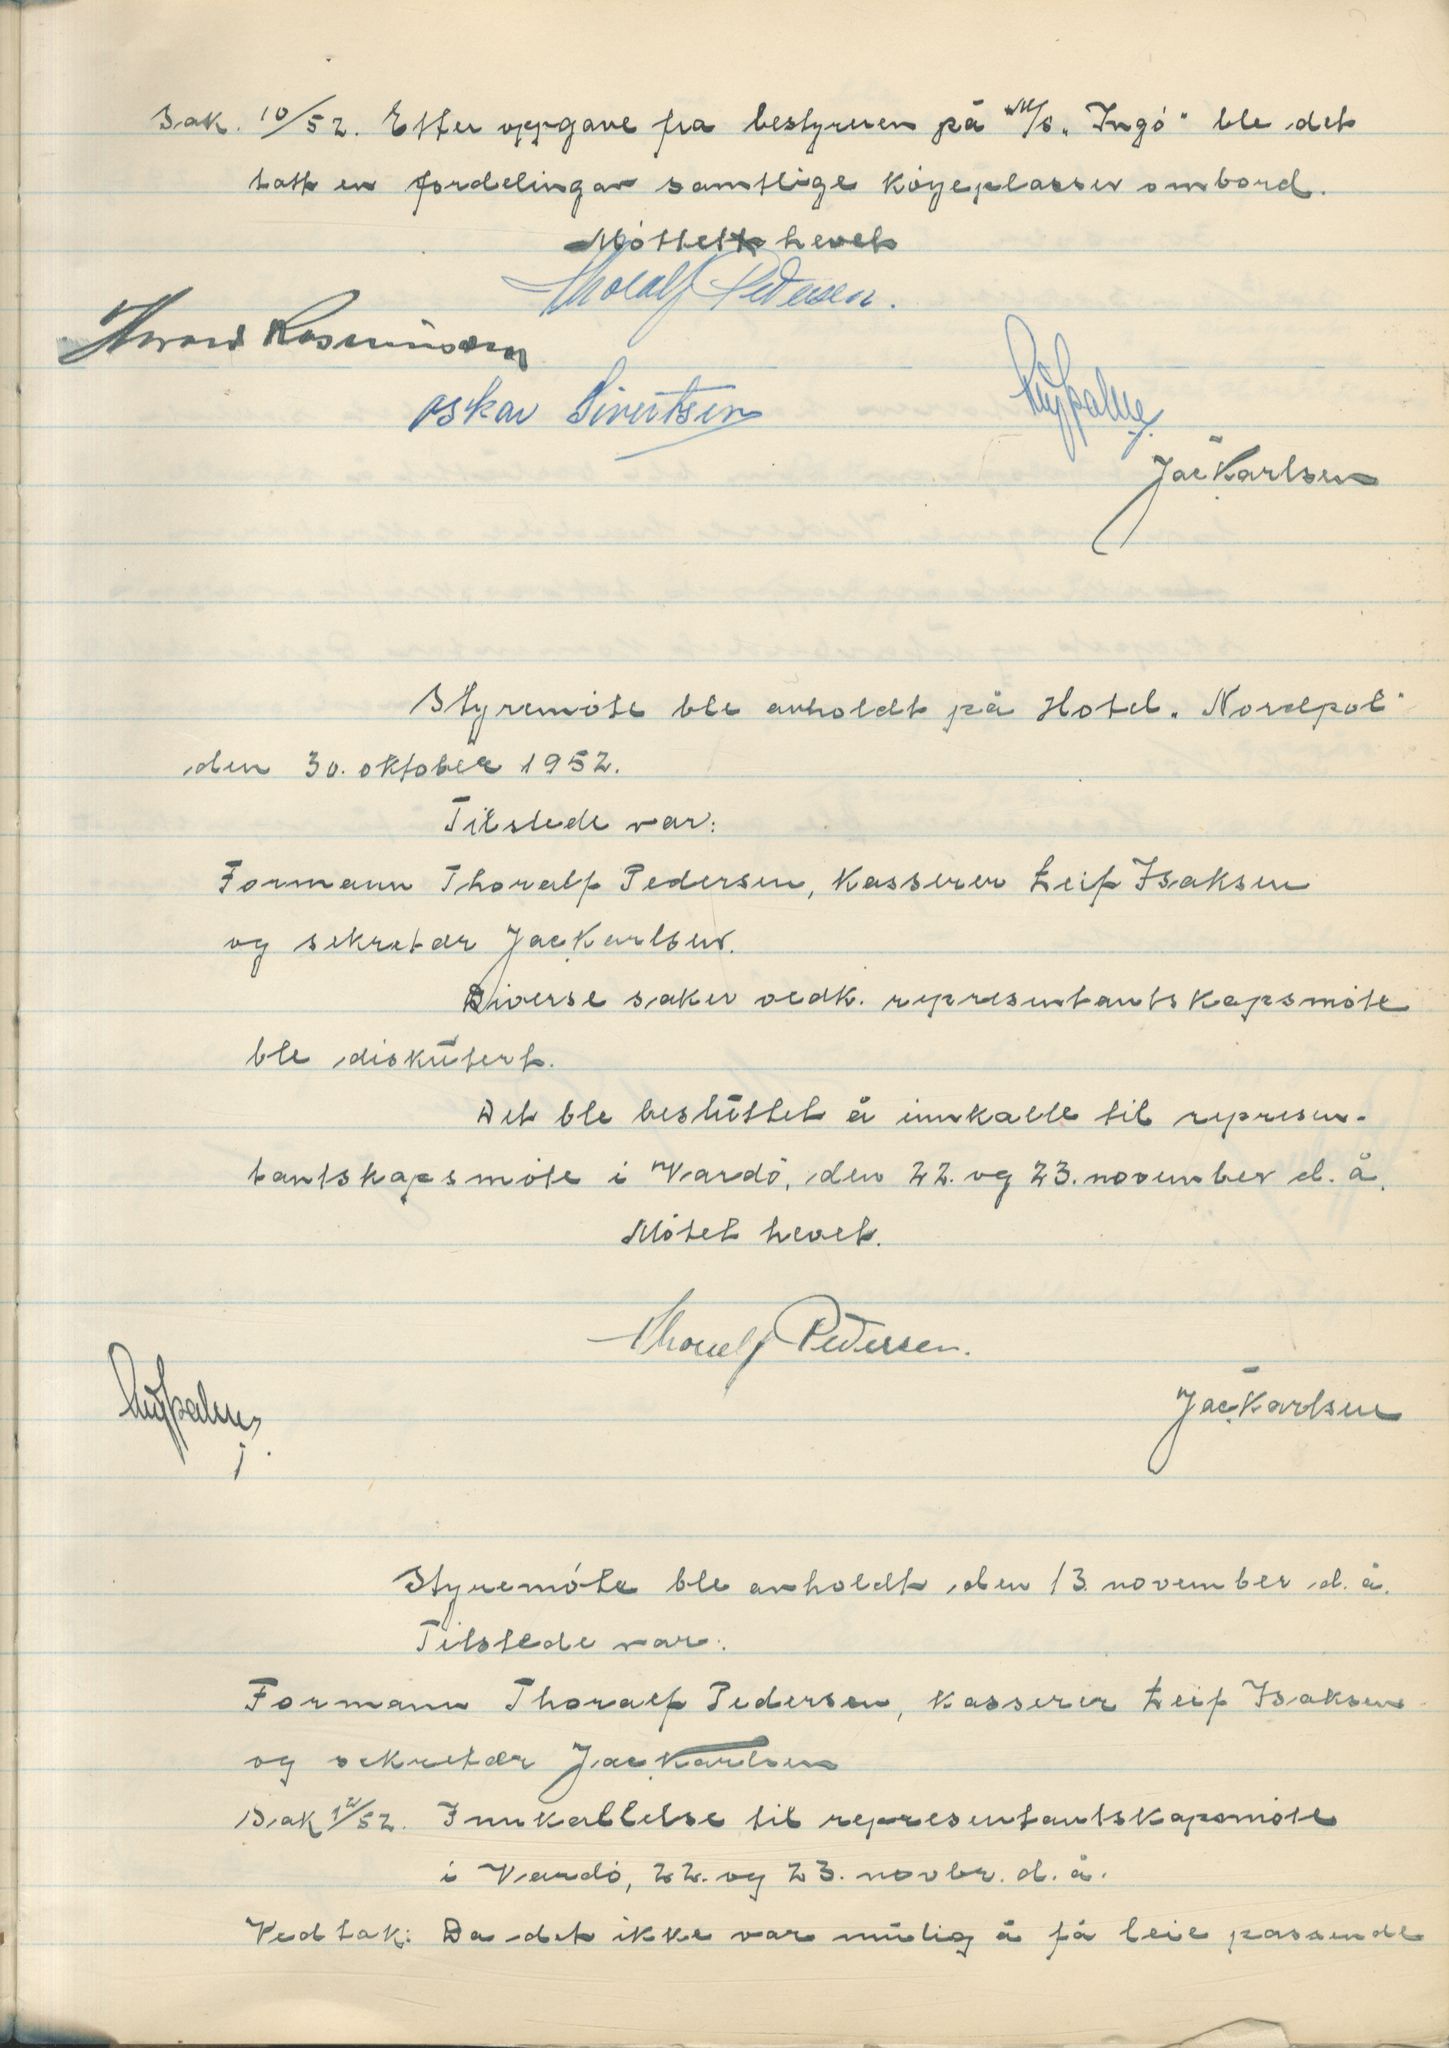 Sak. 10/52. Etter oppgave fra bestyreren på M/S. "Ingó" ble det
tatt en fordeling av samtlige køyeplasser ombord.
Møttet hevet
Thoralf Pedersen.
Oskar Sivertsen
Jac Karlsen
Styremøte ble avholdt på Hotel "Nordpol"
den 30. oktober 1952.
Tilstede var:
Formann Thoralf Pedersen, Kasserer Leif Isaksen
og sekretær Jac Karlsen.
Diverse saker vedk. representantskapsmøte
ble diskütert.
Det ble beslüttet å innkalle til represen-
tantskapsmøte i Vardø, den 22. og 23. november d. å.
Møtet hevet.
Thoralf Pedersen.
Jac Karlsen
Styremøte ble avholdt den 13 november d. å.
Tilstede var:
Formann Thoralf Pedersen, Kasserer Leif Isaksen
og sekretær Jac Karlsen
Sak /52. Innkallelse til representantskapsmøte
i Vardø, 22. og 23. novbr. d. å.
Vedtak: Da det ikke var mülig å få leie passende